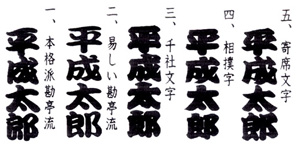 一、本格派勘亭流
平成太郎
二、易しい勘亭流
平成太郎
三、千社文字
平成太郎
四、相撲字
平成太郎
五、寄席文字
平成太郎